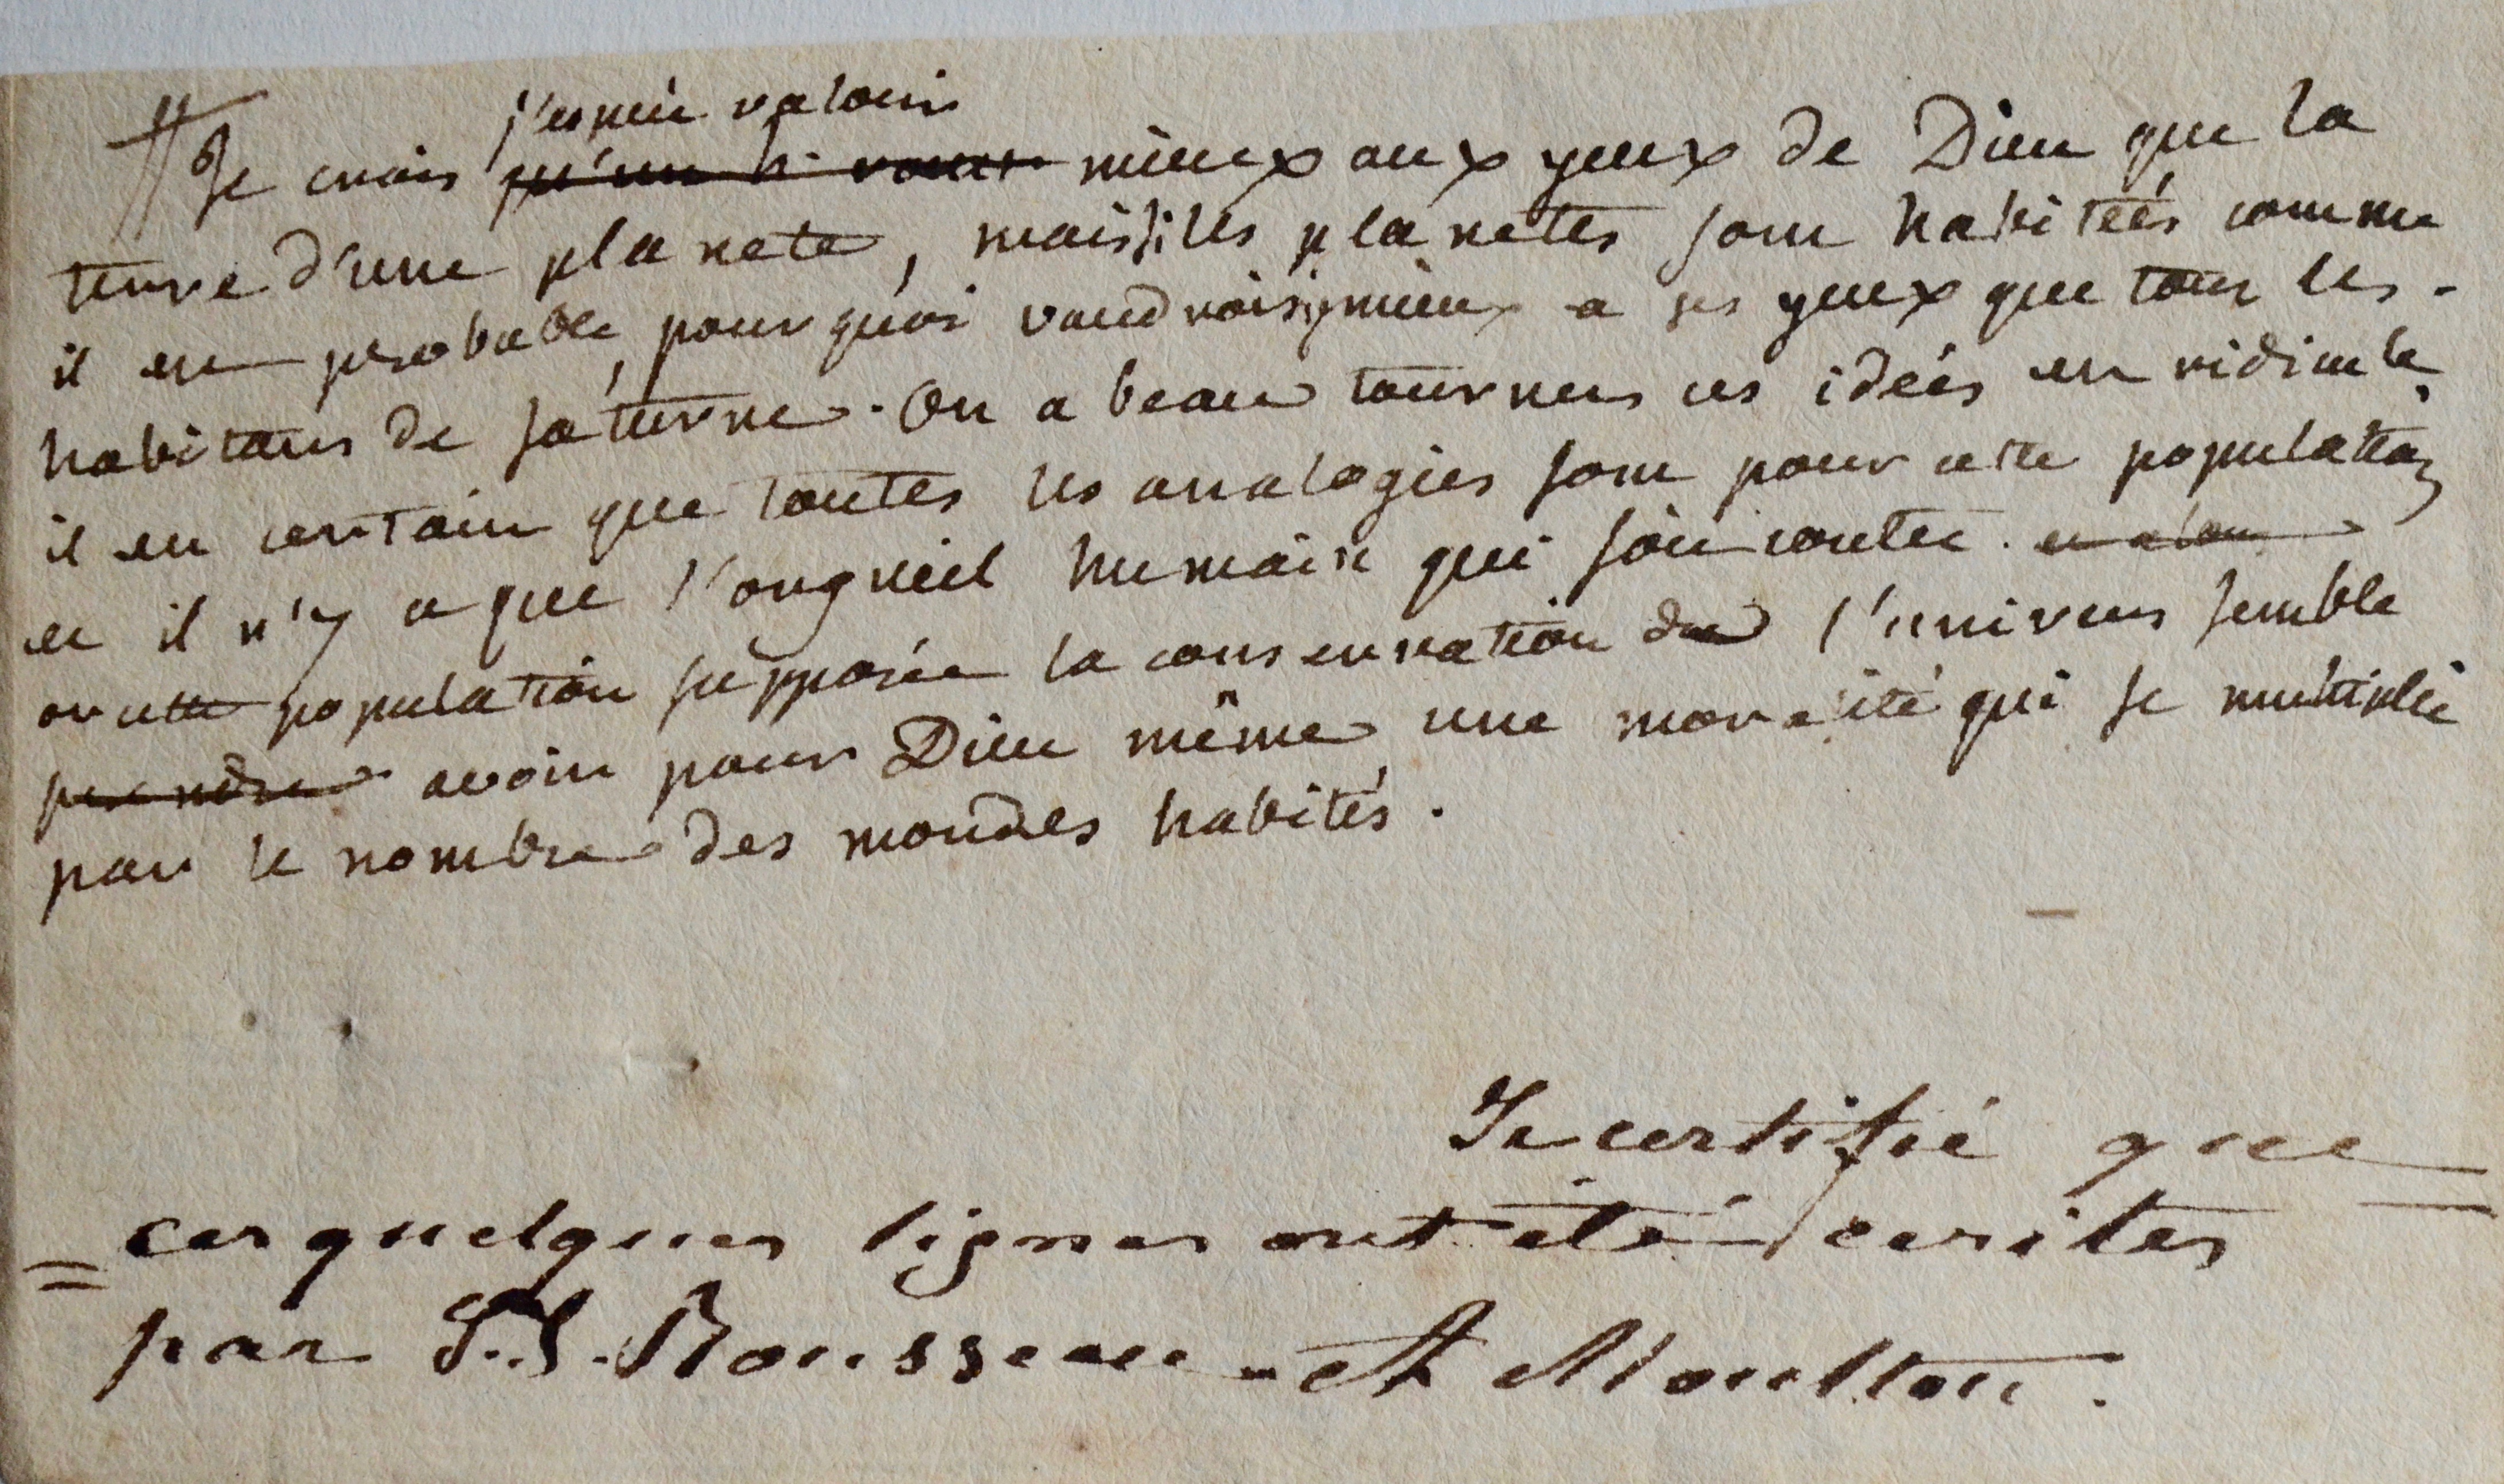 j'espère valoir
Je crois qu'un h. vaut mieux aux yeux de Dieu que la
terre d'une planete, mais si les planetes sont habitées comme
il est probable, pourquoi vaudrois-je mieux a ses yeux que tous les
habitans de saturne. On a beau tourner ces idées en ridicule,
il est certain que toutes les analogies sont pour cette population
et il n'y a que l'orgueil humain qui soit contre.
or cette population supposée la conservation de l'univers semble
prendre avoir pour Dieu même une moralité qui se multiplie
par le nombre des mondes habités.
Je certifie que
ces quelques lignes ont été écrites
par J.J. Rousseau - A Moultou.